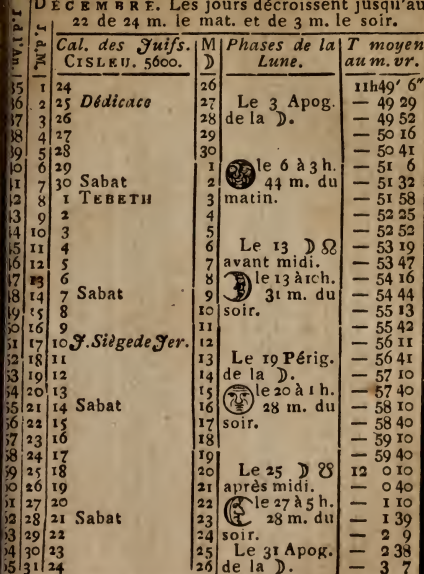 DÉCEMBRE. Les jours décroissent jusqu'au
22 de 24 m. le mat. et de 3 m. le soir.
J.d'An J.d.M. Cal. des Juifs. CISLEU. 5600. M ☽ Phases de la Lune. T moyen au m. vr.
35 1 24 26 11h49' 6"
36 2 25 Dédicace 27 Le 3 Apog. — 49 29
37 3 26 28 de la ☽. — 49 52
38 4 27 29 — 50 16
39 5 28 30 — 50 41
40 6 29 1 le 6 à 3 h. — 51 6
41 7 30 Sabat 2 44 m. du — 51 32
42 8 1 TEBETH 3 matin. — 51 58
43 9 2 4 — 52 25
44 10 3 5 — 52 52
45 11 4 6 Le 13 ☽ ☊ — 53 19
46 12 5 7 avant midi. — 53 47
47 13 6 8 le 13 à 1ch. — 54 16
48 14 7 Sabat 9 31 m. du — 54 44
49 15 8 10 soir. — 55 13
50 16 9 11 — 55 42
51 17 10 J. Siège de Jer. 12 — 56 11
52 18 11 13 Le 19 Périg. — 56 41
53 19 12 14 de la ☽. — 57 10
54 20 13 15 le 20 à 1 h. — 57 40
55 21 14 Sabat 16 28 m. du — 58 10
56 22 15 17 soir. — 58 40
57 23 16 18 — 59 10
58 24 17 19 — 59 40
59 25 18 20 Le 25 ☽ ☋ 12 0 10
60 26 19 21 après midi. — 0 40
61 27 20 22 le 27 à 5 h. — 1 10
62 28 21 Sabat 23 28 m. du — 1 39
63 29 22 24 soir. — 2 9
64 30 23 25 Le 31 Apog. — 2 38
65 31 24 26 de la ☽. — 3 7